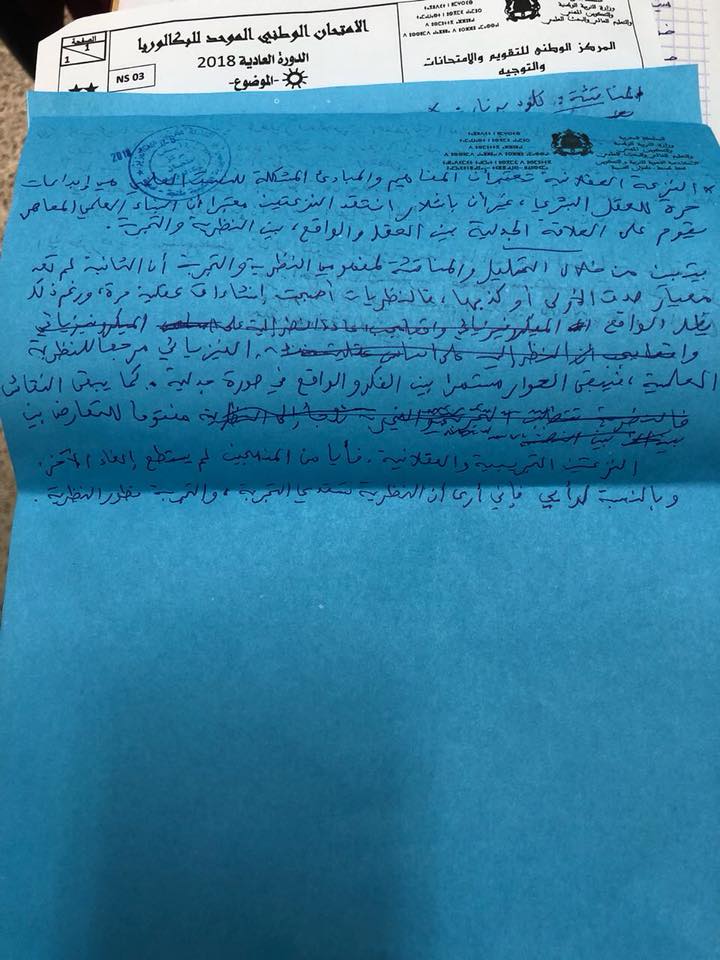 الامتحان الوطني الموحد للبكالوريا
الدورة العادية 2018
-الموضوع-
NS 03
الصفحة
1
1
المركز الوطني للتقويم والامتحانات
والتوجيه
المناقشة: كلود برنار
2018
* النزعة العقلانية تعتبر أن المفاهيم والمبادئ المشكلة للنسق العلمي هي إبداعات
حرة للعقل البشري، غير أن باشلار انتقد النزعتين معتبرا أن البناء العلمي المعاصر
يقوم على العلاقة الجدلية بين العقل والواقع، بين النظرية والتجربة.
يتبين من خلال التحليل والمناقشة لمفهومي النظرية والتجربة أن الثانية لم تعد
معيار صدق الأولى أو كذبها، فالنظريات أصبحت إنشاءات عقلية حرة، ورغم ذلك
يظل الواقع
الفيزيائي مرجعا للنظرية
العلمية، فيبقى الحوار مستمرا بين الفكر والواقع في صورة جدلية. كما يبقى النقاش
مفتوحا للتعارض بين
النزعتين التجريبية والعقلانية. فأيا من المنهجين لم يستطع إلغاء الآخر.
وبالنسبة لرأيي فإني أرى أن النظرية تستدعي التجربة، والتجربة تطور النظرية.